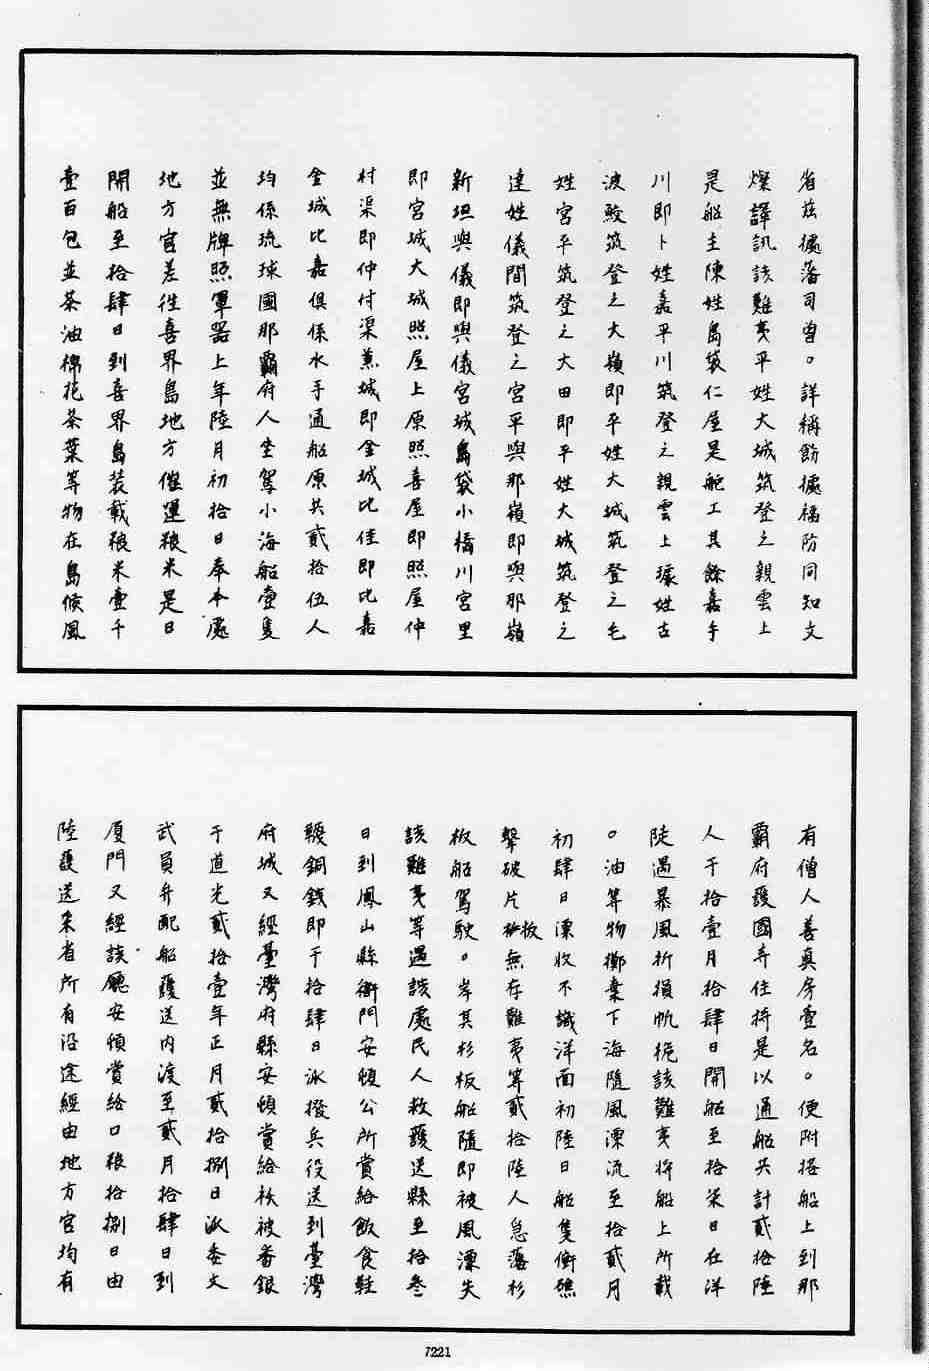 省茲據藩司曾。詳稱飭據福防同知文
燦譯訊該難夷平姓大城筑登之親雲上
是船主陳姓島袋仁屋是舵工其餘嘉手
川即卜姓嘉平川筑登之親雲上璩姓古
波鮫筑登之大嶺即平姓大城筑登之乇
姓宮平筑登之大田即平姓大城筑登之
達姓儀間筑登之宮平與那嶺即與那嶺
新垣與儀即與儀宮城島袋小橋川宮里
即宮城大城照屋上原照喜屋即照屋仲
村渠即仲付渠蕉城即金城比佳即比嘉
金城比嘉俱係水手通船原共貳拾伍人
均係琉球國那霸府人坐駕小海船壹隻
並無牌照軍器上年陸月初拾日奉本處
地方官差徃喜界島地方催運粮米是日
開船至拾肆日到喜界島裝載粮米壹千
壹百包並茶油棉花茶葉等物在島候風
有僧人善真房壹名。便附搭船上到那
霸府護國寺住持是以通船共計貳拾陸
人于拾壹月拾肆日開船至拾柒日在洋
陡遇暴風折損帆桅該難夷將船上所載
。油等物擲棄下海隨風漂流至拾貳月
初肆日漂收不識洋面初陸日船隻衝礁
擊破片板無存難夷等貳拾陸人急落杉
板船駕駛。岸其杉板船隨即被風漂失
該難夷等遇該處民人救護送縣至拾叁
日到鳳山縣衙門安頓公所賞給飯食鞋
韈銅錢即于拾肆日派撥兵役送到臺灣
府城又經臺灣府縣安頓賞給袄被番銀
于道光貳拾壹年正月貳拾捌日派委文
武員弁配船護送內渡至貳月拾肆日到
厦門又經該廳安頓賞給口粮拾捌日由
陸護送來省所有沿途經由地方官均有
7221